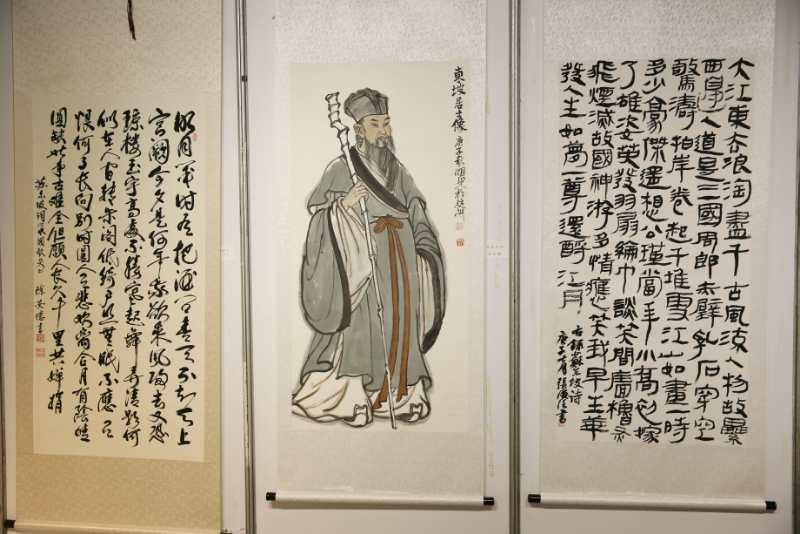 明月幾時有把酒问青天不知天上
宫闕今夕是何年我欲乘风歸去又恐
瓊楼玉宇高處不勝寒起舞弄清影何
似在人間转朱阁低绮户照無眠不應有
恨何事长向别時圆人有悲歡離合月有陰晴
圆缺此事古難全但願人長久千里共婵娟
東坡居士像
庚子秋
大江東去浪淘盡千古風流人物故壘
西邊人道是三國周郎赤壁亂石穿空
驚濤拍岸卷起千堆雪江山如畫一時
多少豪傑遙想公瑾當年小喬初嫁
了雄姿英發羽扇綸巾談笑間檣櫓灰
飛煙滅故國神游多情應笑我早生華
發人生如夢一尊還酹江月
右錄蘇東坡詩
庚子七月張